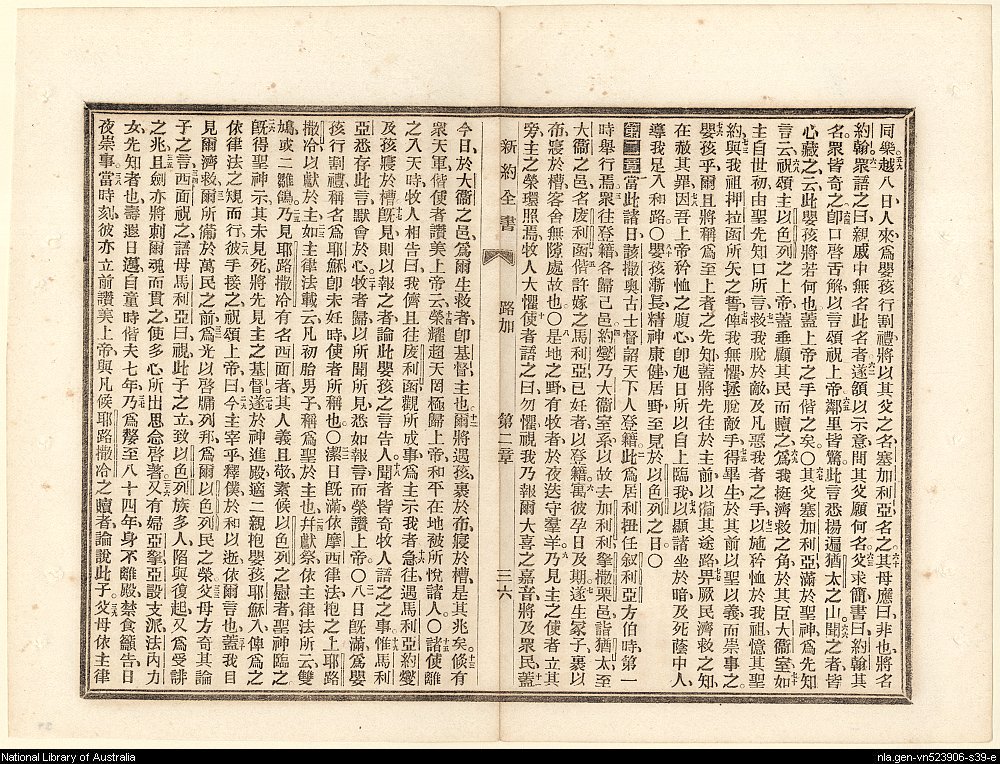 同樂越八日人來爲嬰孩行割禮將以其父之名塞加利亞名之其母應曰非也將名
約翰衆語之曰親戚中無名此名者遂頷以示意問其父願何名父求簡書曰約翰其
名衆皆奇之卽口啓舌解以言頌祝上帝鄰里皆驚此言悉揚遍猶太之山聞之者皆
心藏之云此嬰孩將若何也蓋上帝之手偕之矣〇其父塞加利亞滿於聖神爲先知
言云祝頌主以色列之上帝蓋垂顧其民而贖之爲我挺濟救之角於其臣大衞室如
主自世初由聖先知口所言救我脫於敵及凡惡我者之手以施矜恤於我祖憶其聖
約與我祖押拉函所矢之誓俾我無懼拯脫敵手得畢生於其前以聖以義而崇事之
嬰孩乎爾且將稱爲至上者之先知蓋將先往於主前以備其途路畀厥民濟救之知
在赦其罪因吾上帝矜恤之腹心卽旭日所以自上臨我以顯諸坐於暗及死蔭中人
導我足入和路〇嬰孩漸長精神康健居野至見於以色列之日〇
第二章當此諸日該撒奧古士督詔天下人登籍此爲居利扭任敘利亞方伯時第一
時舉行焉衆往登籍各歸己邑約燮乃大衞室系以故去加利利拏撒栗邑詣猶太至
大衞之邑名庋利函偕許嫁之馬利亞已妊者以登籍寓彼孕日及期遂生冢子裹以
布寢於槽客舍無隙處故也〇是地之野有牧者於夜迭守羣羊乃見主之使者立其
旁主之榮環照焉牧人大懼使者語之曰勿懼視我乃報爾大喜之嘉音將及衆民蓋
新約全書 路加 第二章 三六
今日於大衞之邑爲爾生救者卽基督主也爾將遇孩裹於布寢於槽是其兆矣倏有
衆天軍偕使者讚美上帝云榮耀超天罔極歸上帝和平在地被所悅諸人〇諸使離
之入天時牧人相告曰我儕且往庋利函觀所成事爲主示我者急往遇馬利亞約燮
及孩寢於槽旣見則以報之者論此嬰孩之言告人聞者皆奇牧人語之之事惟馬利
亞悉存此言默會於心牧者歸以所聞所見悉如報言而榮讚上帝〇八日旣滿爲嬰
孩行割禮稱名爲耶穌卽未妊時使者所稱也〇潔日旣滿依摩西律法抱之上耶路
撒冷以獻於主如主律法載云凡初胎男子稱爲聖於主也幷獻祭依主律法所云雙
鳩或二雛鴿乃見耶路撒冷有名西面者其人義且敬素候以色列之慰者聖神臨之
旣得聖神示其未見死將先見主之基督遂於神進殿適二親抱嬰孩耶穌入俾爲之
依律法之規而行彼手接之祝頌上帝曰今主宰乎釋僕於和以逝依爾言也蓋我目
見爾濟救爾所備於萬民之前爲光以啓牖列邦爲爾以色列民之榮父母方奇其論
子之言西面祝之語母馬利亞曰視此子之立致以色列族多人陷與復起又爲受誹
之兆且劍亦將刺爾魂而貫之使多心所出思念啓著又有婦亞拏亞設支派法內力
女先知者也壽遐日邁自童時偕夫七年乃爲嫠至八十四年身不離殿禁食籲告日
夜崇事當時刻彼亦立前讚美上帝與凡候耶路撒冷之贖者論說此子父母依主律